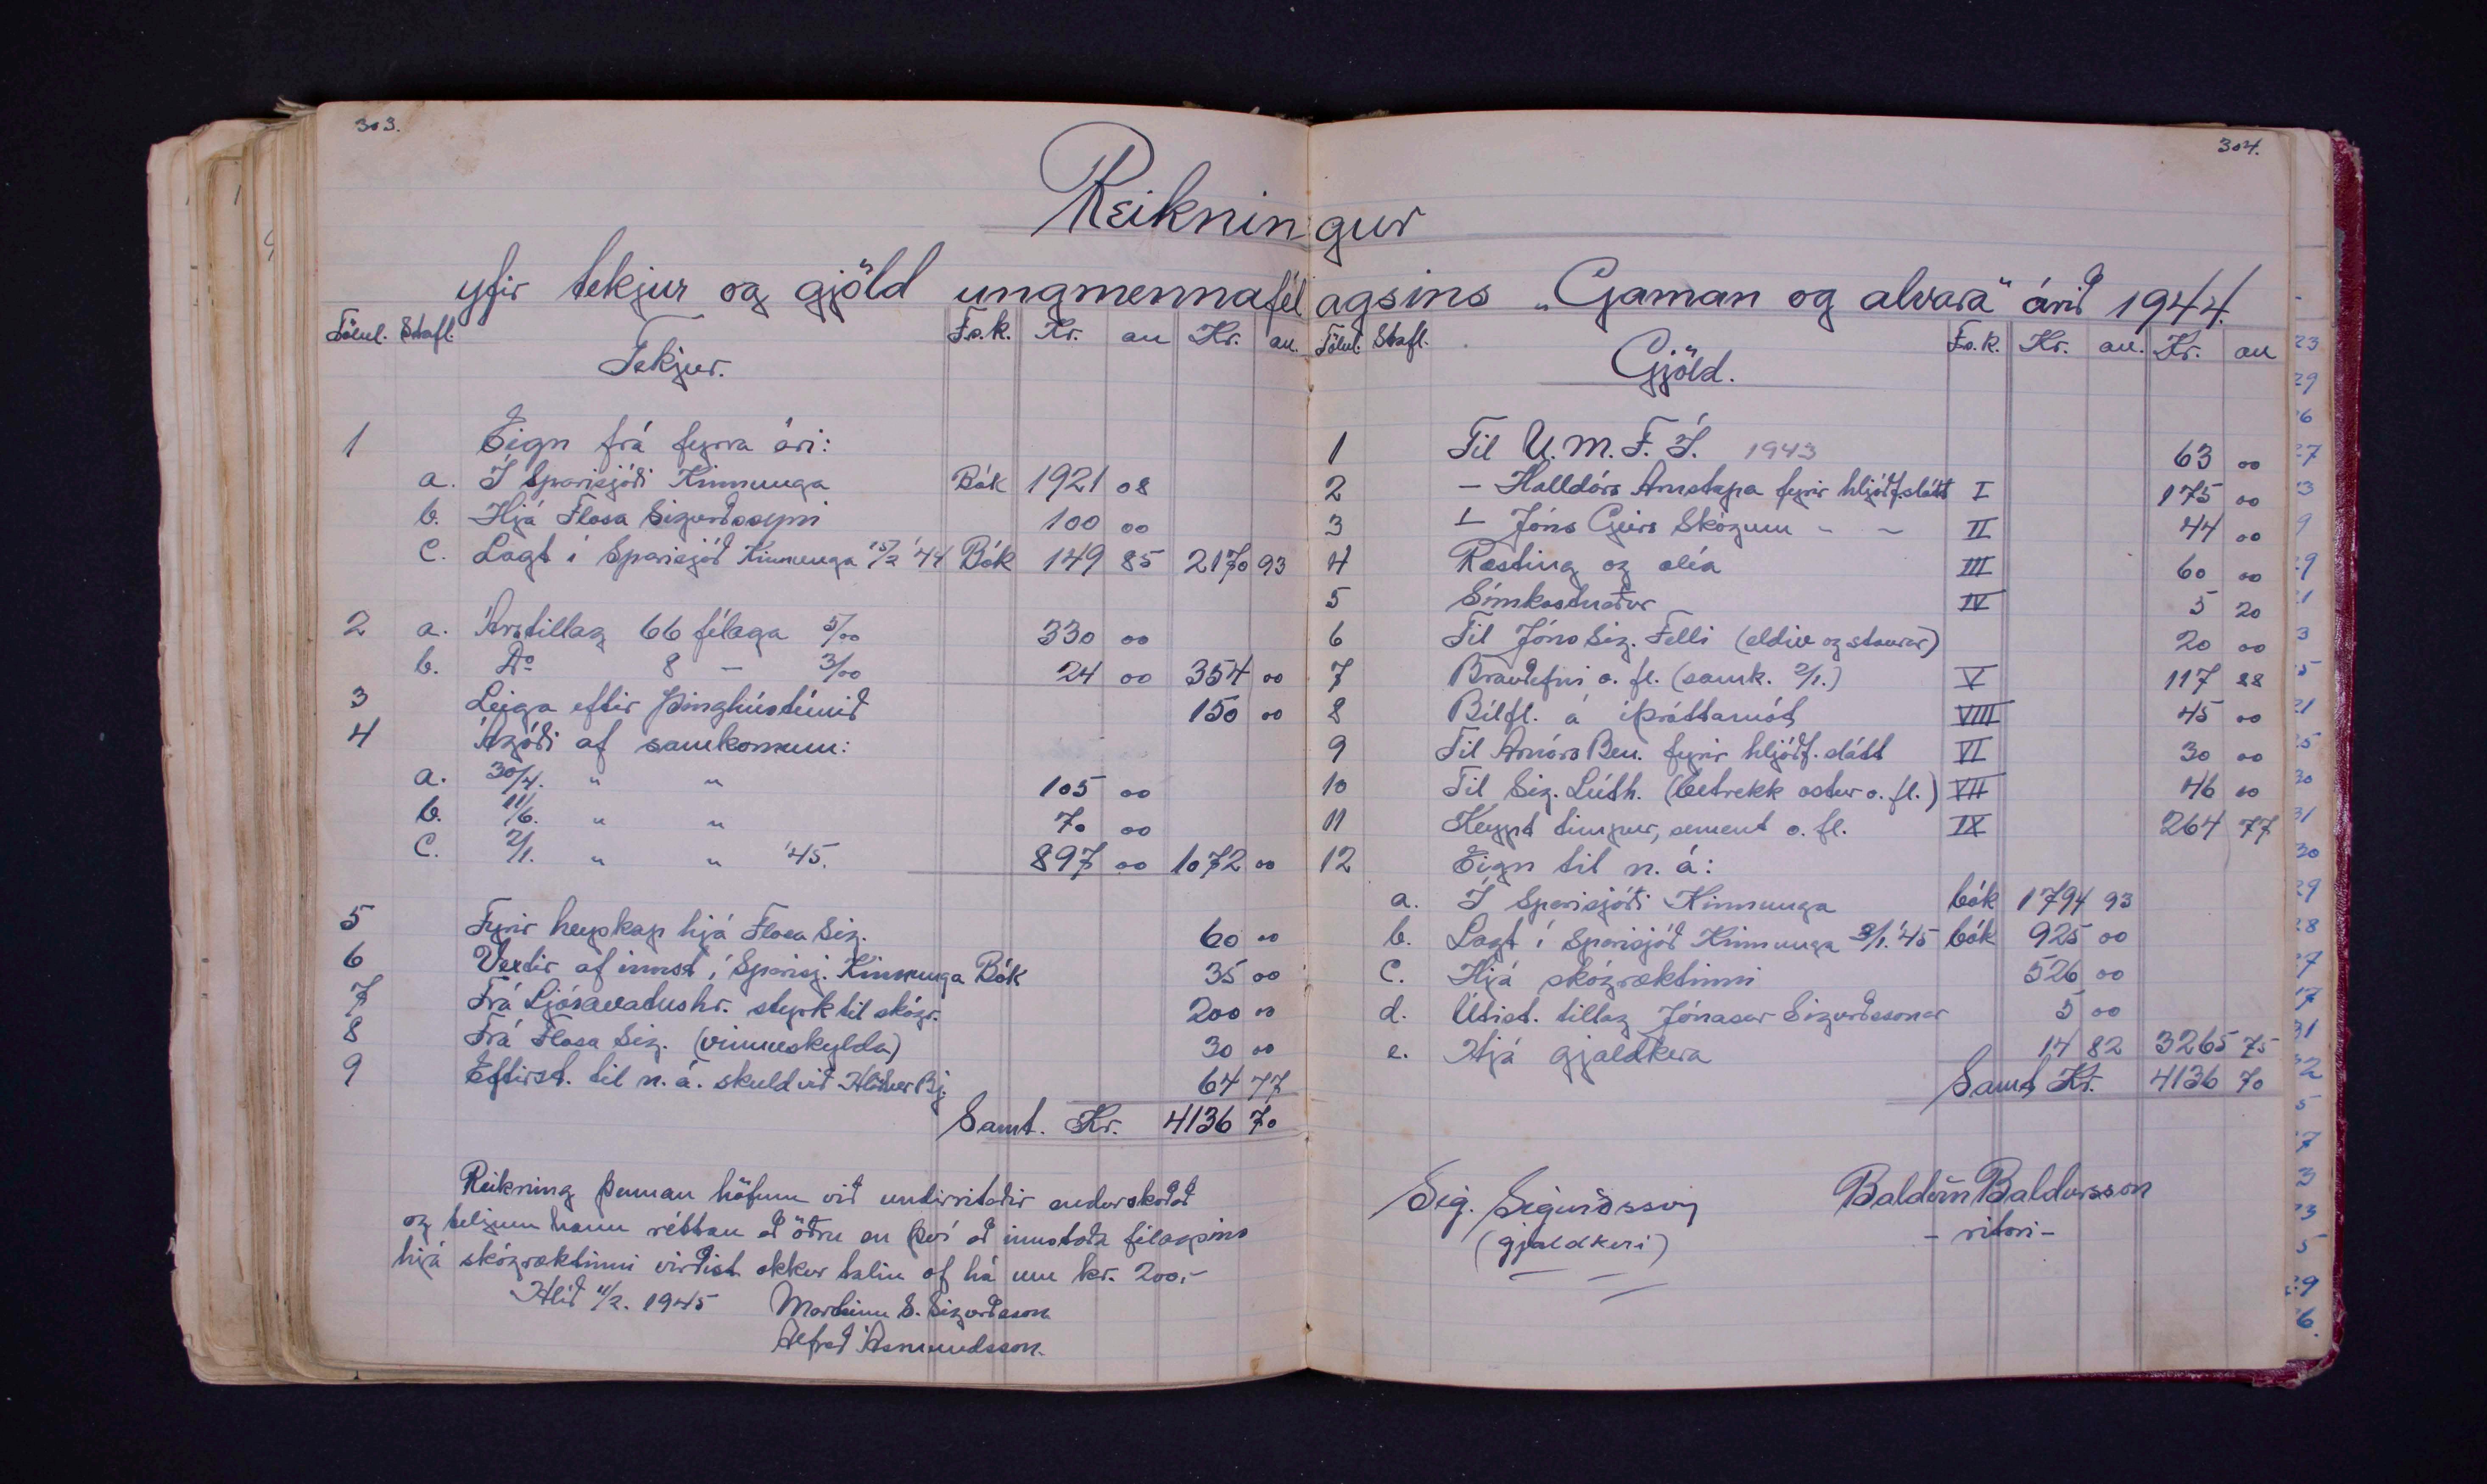 303.
304.
Reikningur
yfir tekjur og gjöld ungmennafélagsins „Gaman og alvara" árið 1944.
Tölul. Stafl. Tekjur. Fs.k. Kr. au Kr. au.
1 Eign frá fyrra ári:
a. Í Sparisjóði Kinnunga Bók 1921 08
b. Hjá Flosa Sigurðssyni 100 00
c. Lagt í Sparisjóð Kinnunga 15/2 '44 Bók 149 85 2170 93
2 a. Árstillag 66 félaga 5/00 330 00
b. Do 8 — 3/00 24 00 354 00
3 Leiga eftir þinghústúnið 150 00
4 Ágóði af samkomum:
a. 30/4. " " 105 00
b. 11/6. " " 70 00
c. 2/1. " " '45. 897 00 1072 00
5 Fyrir heyskap hjá Flosa Sig. 60 00
6 Vextir af innst í Sparisj. Kinnunga Bók 35 00
7 Frá Ljósavatnshr. styrk til skógr. 200 00
8 Frá Flosa Sig. (vinnuskylda) 30 00
9 Eftirst. til n. á. skuld við Hlöðver Bj. 64 77
Samt. Kr. 4136 70
Reikning þennan höfum við undirritaðir endurskoðað
og teljum hann réttan að öðru en því að innstæða félagsins
hjá skógræktinni virðist okkur talin of há um kr. 200,-
Hlíð 11/2. 1945 Marteinn S. Sigurðsson
Alfreð Ásmundsson.
Tölul. Stafl. Gjöld. Fs.k. Kr. au. Kr. au
1 Til U.M.F.Í. 1943 63 00
2 — Halldórs Arnstapa fyrir hljóðf.slátt I 175 00
3 — Jóns Geirs Skógum - - II 44 00
4 Ræsting og olía III 60 00
5 Símkostnaður IV 5 20
6 Til Jóns Sig. Felli (eldiv og staurar) 20 00
7 Brauðefni o. fl. (samk. 2/1.) V 117 88
8 Bílfl. á íþróttamót VIII 45 00
9 Til Arnórs Ben. fyrir hljóðf. slátt VI 30 00
10 Til Sig. Lúth. (betrekk ostur o. fl.) VII 46 00
11 Keypt timbur, sement o. fl. IX 264 77
12 Eign til n. á:
a. Í Sparisjóði Kinnunga bók 1794 93
b. Lagt í Sparisjóð Kinnunga 3/1. '45 bók 925 00
c. Hjá skógræktinni 526 00
d. Útist. tillag Jónasar Sigurðssonar 5 00
e. Hjá gjaldkera 14 82 3265 75
Samt Kr. 4136 70
Sig. Sigurðsson
(gjaldkeri)
Baldvin Baldursson
- ritari -